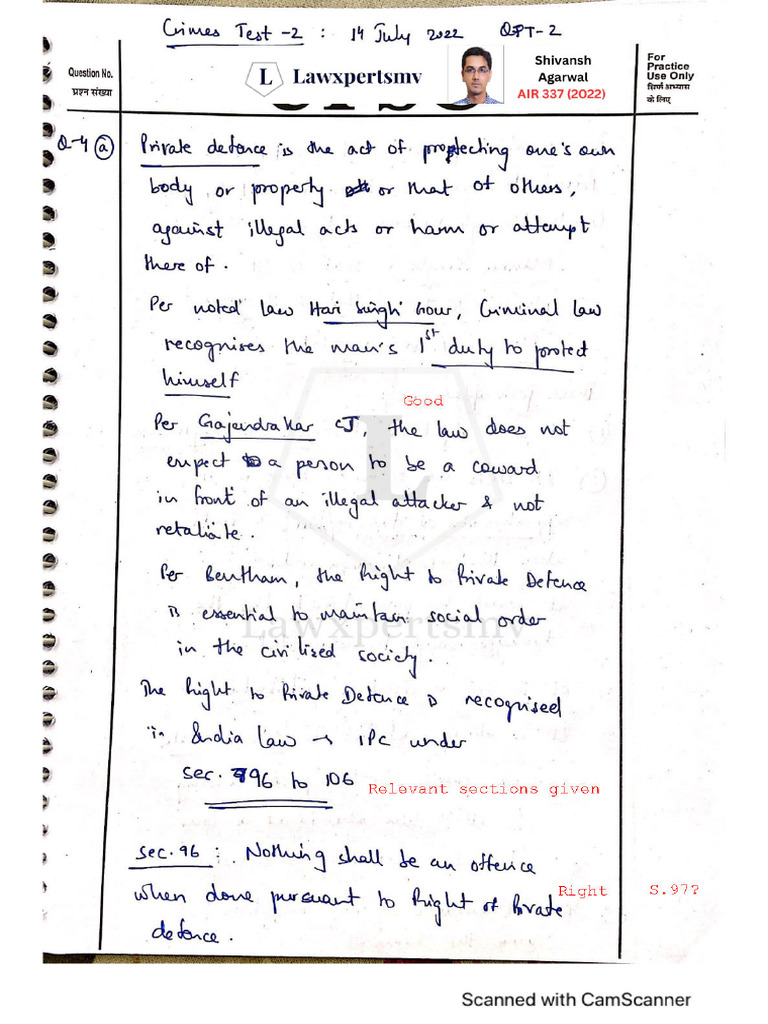 Crimes Test -2 : 14 July 2022 QPT-2
Question No.
प्रश्न संख्या
L Lawxpertsmv
Shivansh
Agarwal
AIR 337 (2022)
For
Practice
Use Only
सिर्फ अभ्यास
के लिए
Q-4 (a) Private defence is the act of protecting one's own
body or property or that of others,
against illegal acts or harm or attempt
there of.
Per noted law Hari Singh Gour, Criminal law
recognises the man's 1st duty to protect
himself
Good
Per Gajendrakar CJ, the law does not
expect a person to be a coward
in front of an illegal attacker & not
retaliate.
Per Bentham, the Right to Private Defence
is essential to maintain social order
in the civilised society.
Lawxpertsmv
The Right to Private Defence is recognised
in India Law → IPC under
sec. 96 to 106
Relevant sections given
Sec. 96 : Nothing shall be an offence
when done pursuant to Right of Private
Right S.97?
defence.
Scanned with CamScanner